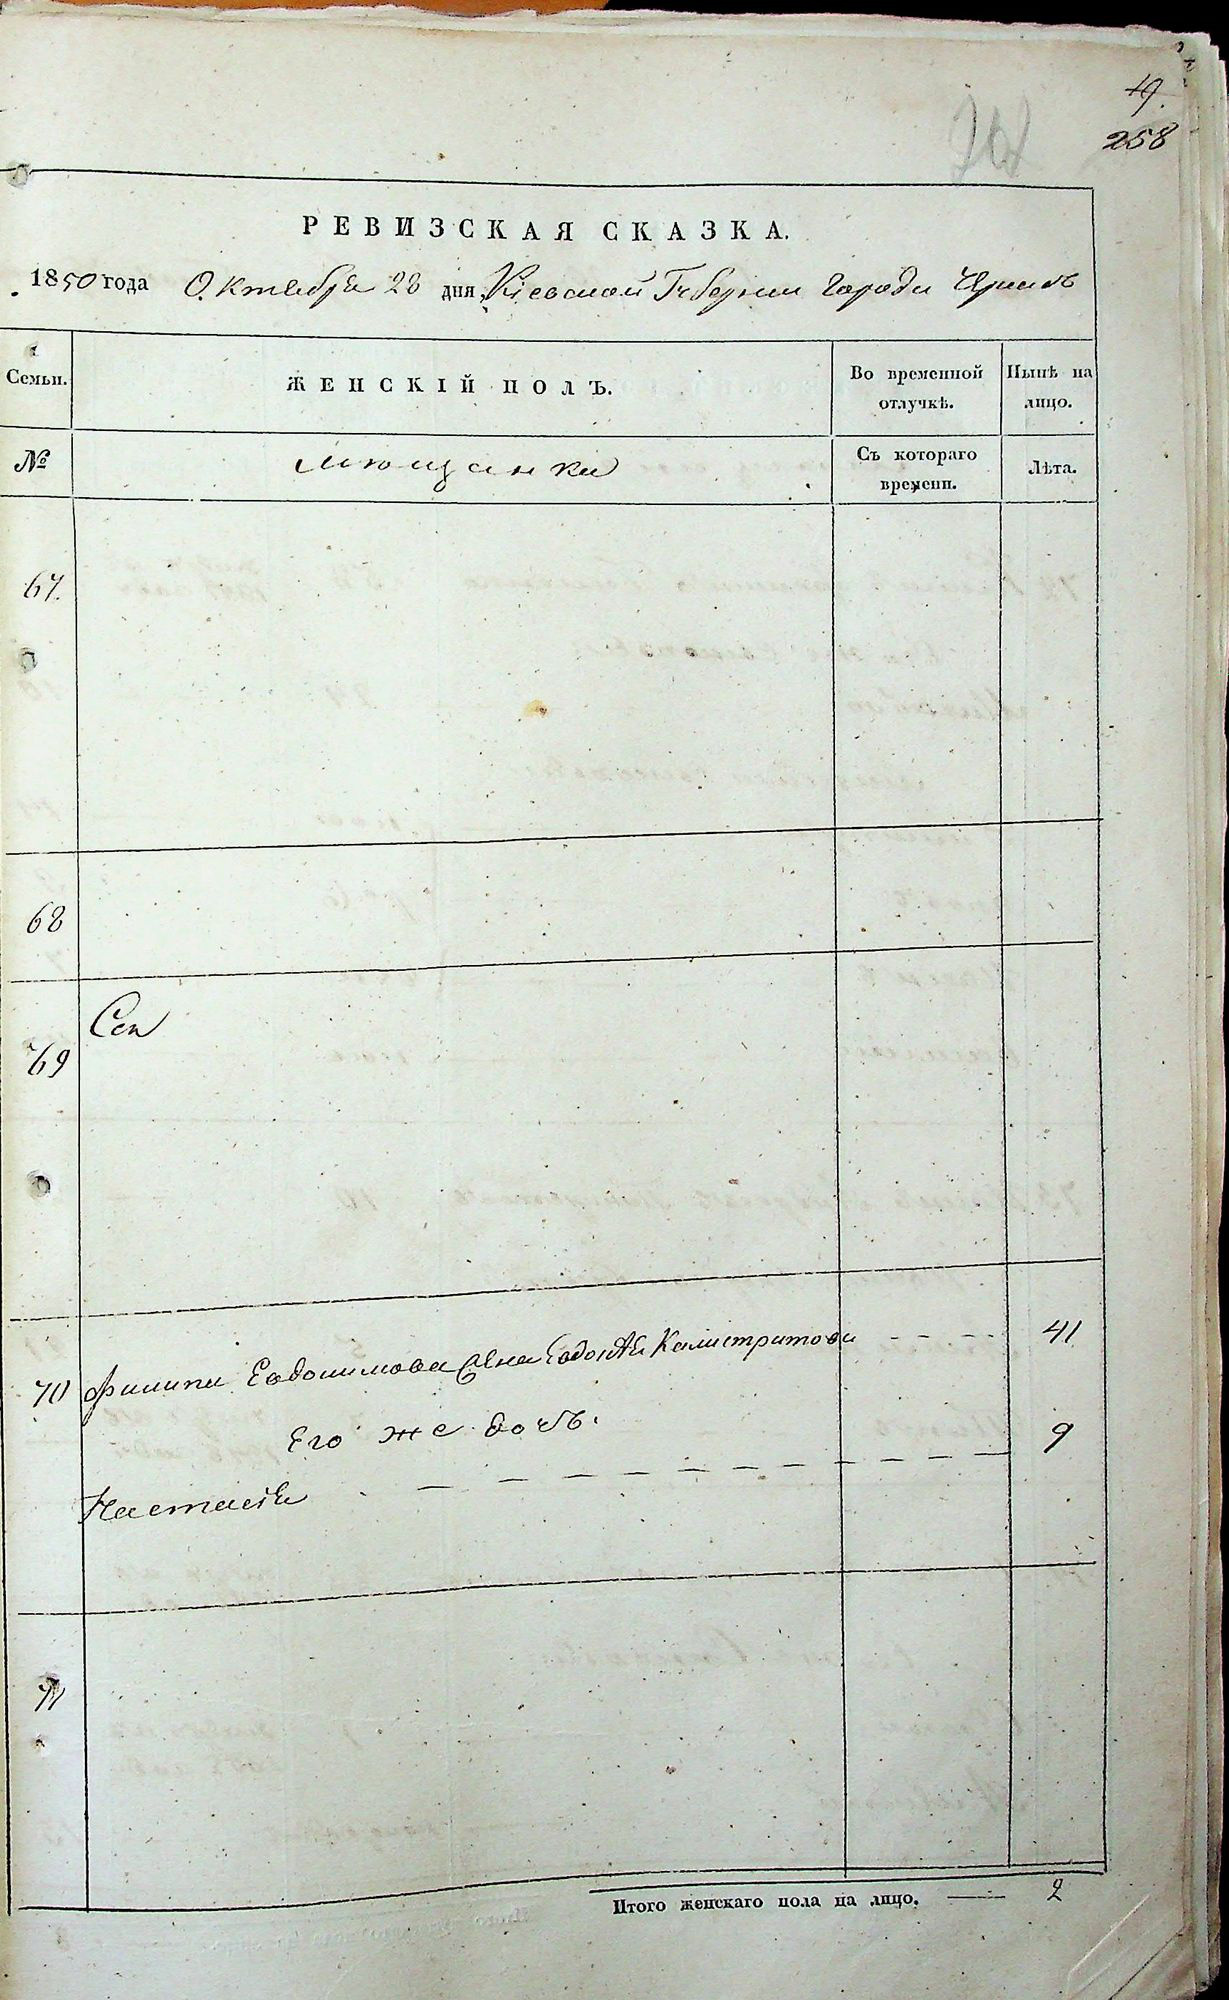 19.
258
РЕВИЗСКАЯ СКАЗКА.
1850 года Октября 28 дня, Кіевской Губернии Города
Семьи. ЖЕНСКІЙ ПОЛЪ. Во временной отлучкѣ. Нынѣ на лицо.
№ мющанки Съ котораго времени. Лѣта.
67.
68
69
70 Филипа Евдокимова Жена Евдокѣя Калистратова - - - - 41
Его же дочь.
Настасія - - - - - - - - - 9
71
Итого женскаго пола на лицо. — 2